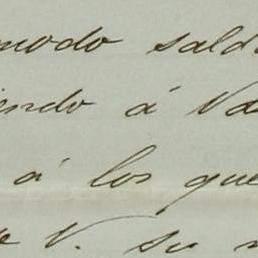 modo sald
iendo á Vd
á los que
e V. su